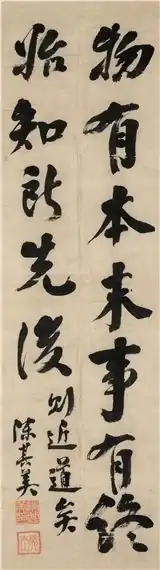 物有本末事有终
始知所先後
则近道矣
陈其美